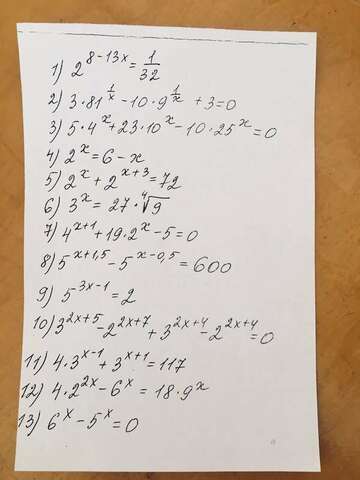 1) 2^{8-13x} = 1/32
2) 3·81^{1/x} - 10·9^{1/x} + 3 = 0
3) 5·4^x + 23·10^x - 10·25^x = 0
4) 2^x = 6 - x
5) 2^x + 2^{x+3} = 72
6) 3^x = 27·⁴√9
7) 4^{x+1} + 19·2^x - 5 = 0
8) 5^{x+1,5} - 5^{x-0,5} = 600
9) 5^{3x-1} = 2
10) 3^{2x+5} - 2^{2x+7} + 3^{2x+4} - 2^{2x+4} = 0
11) 4·3^{x-1} + 3^{x+1} = 117
12) 4·2^{2x} - 6^x = 18·9^x
13) 6^x - 5^x = 0